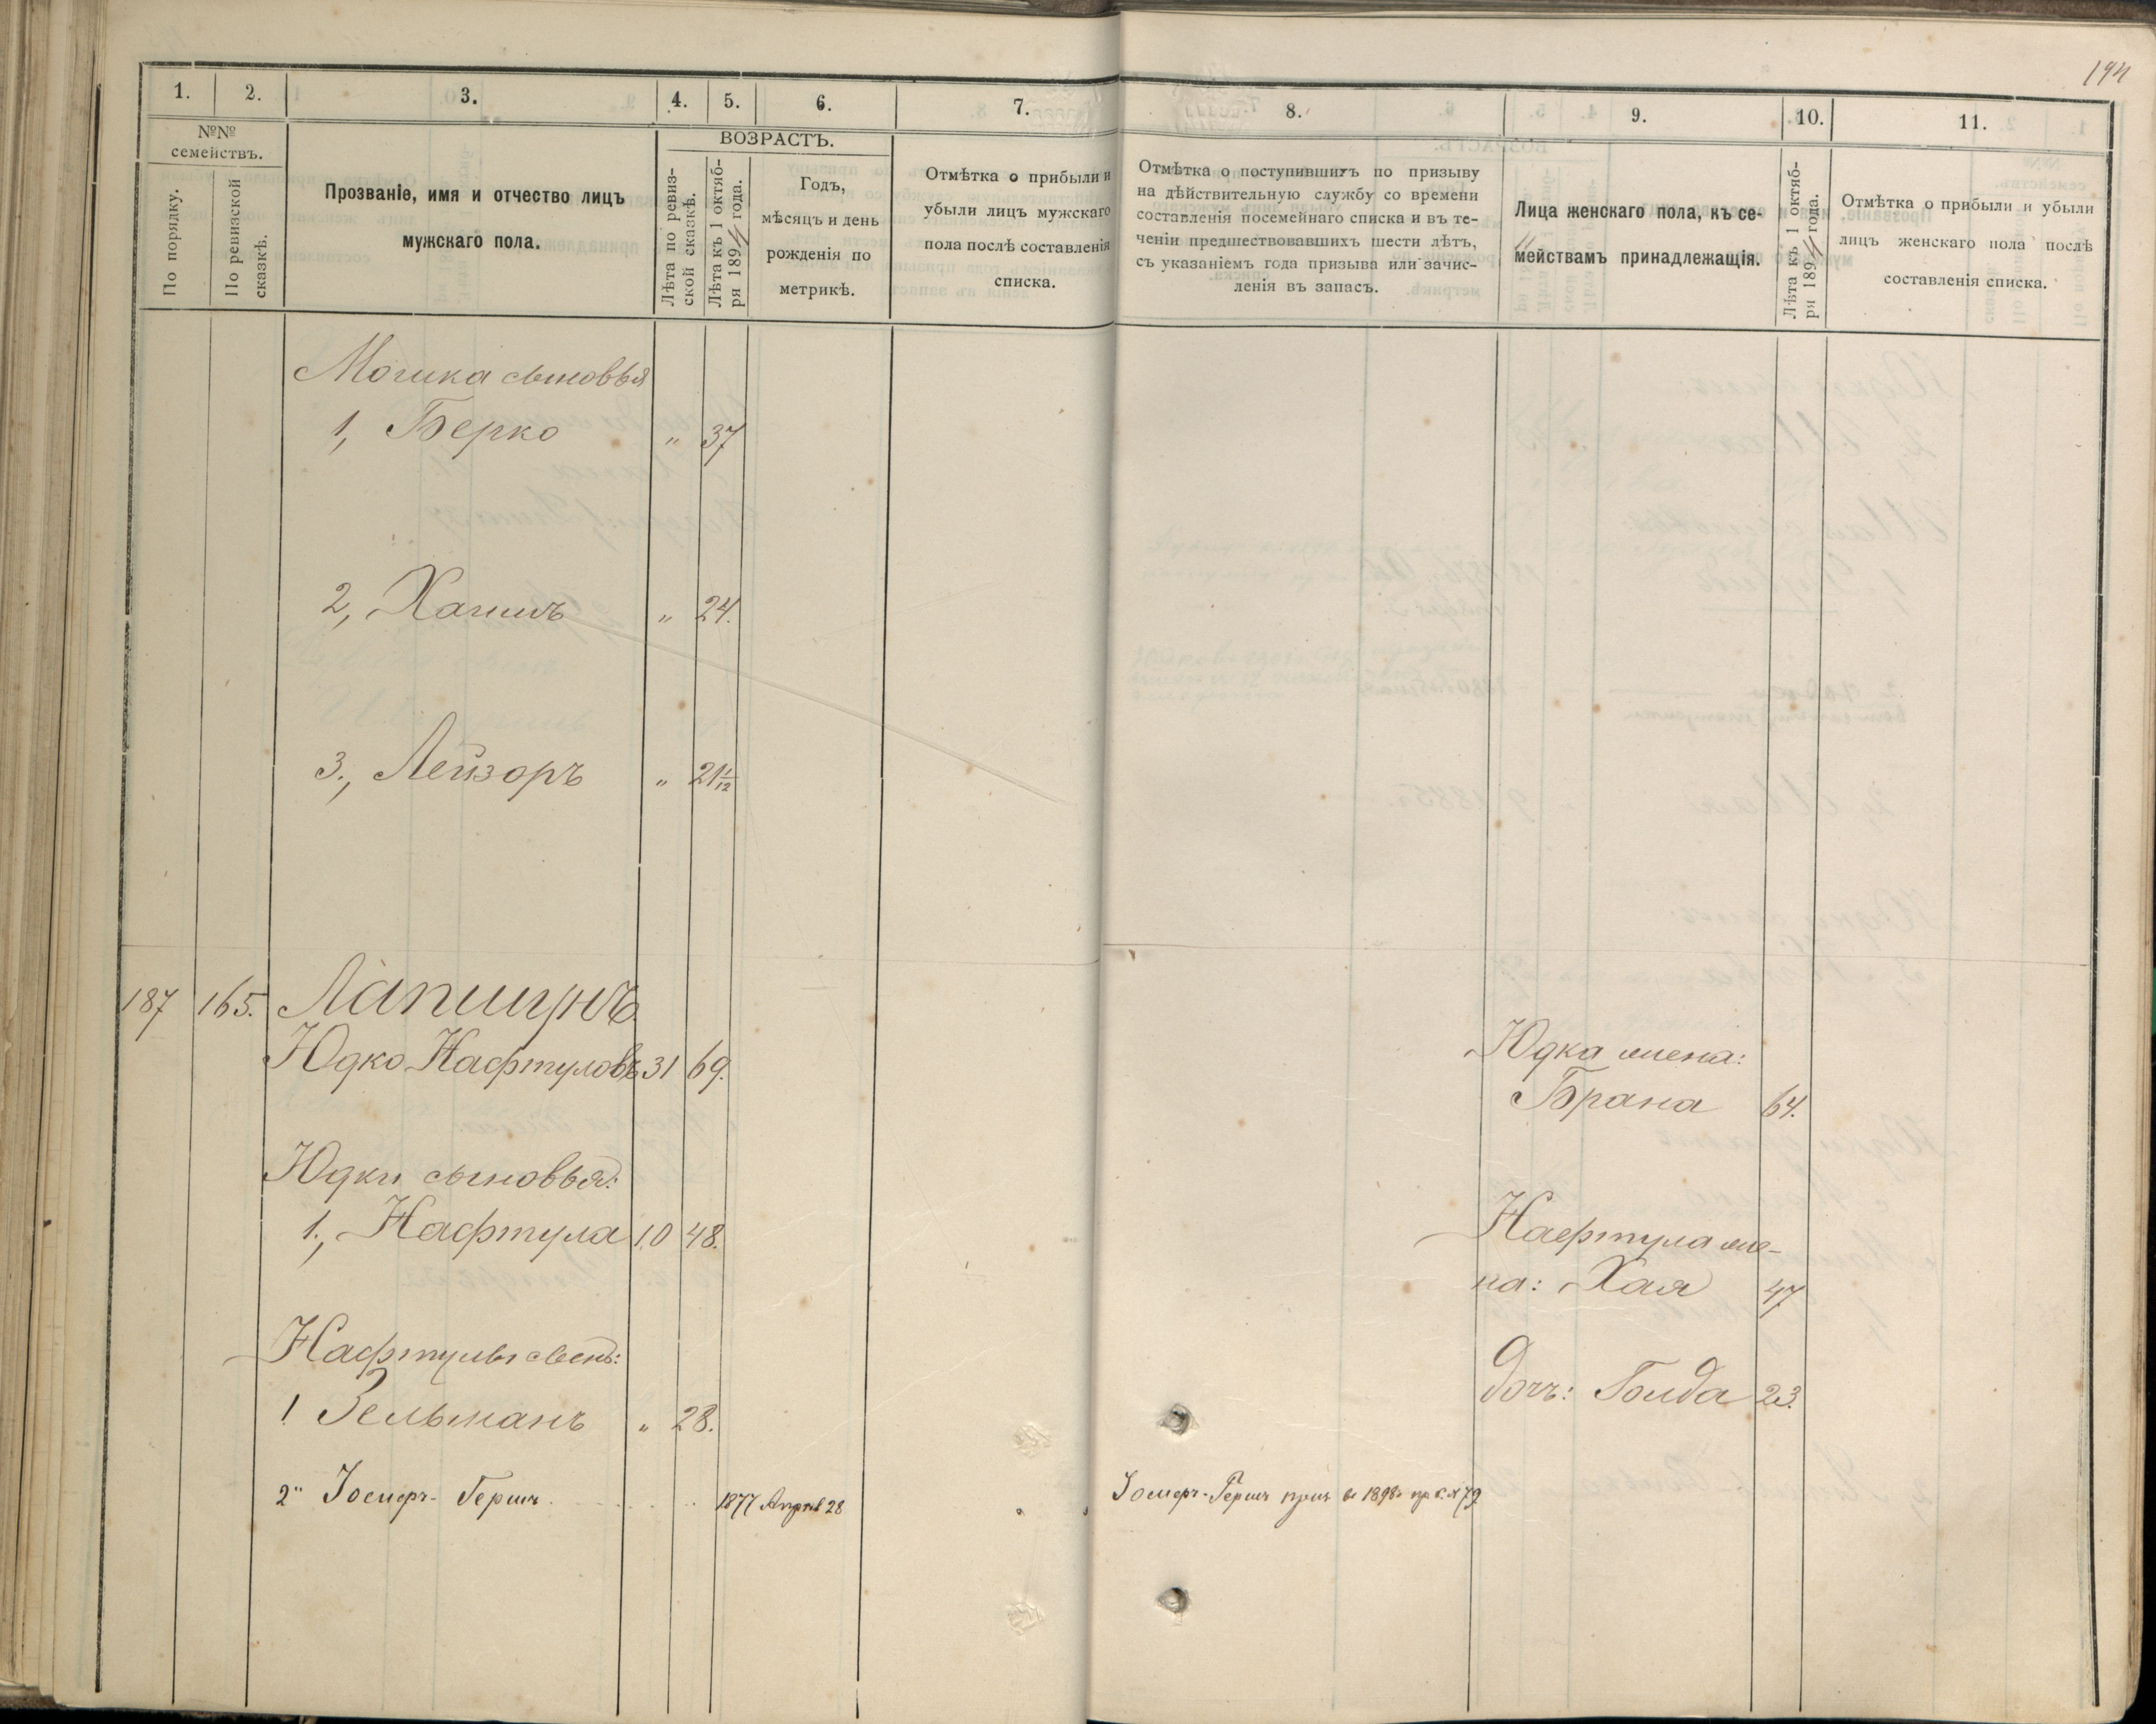 194
1. 2. 3. 4. 5. 6. 7. 8. 9. 10. 11.
№№ семействъ.
По порядку.
По ревизской сказкѣ.
Прозваніе, имя и отчество лицъ
мужскаго пола.
ВОЗРАСТЪ.
Лѣта по ревиз-
ской сказкѣ.
Лѣта къ 1 октяб-
ря 1894 года.
Годъ,
мѣсяцъ и день
рожденія по
метрикѣ.
Отмѣтка о прибыли и
убыли лицъ мужскаго
пола послѣ составленія
списка.
Отмѣтка о поступившихъ по призыву
на дѣйствительную службу со времени
составленія посемейнаго списка и въ те-
ченіи предшествовавшихъ шести лѣтъ,
съ указаніемъ года призыва или зачис-
ленія въ запасъ.
Лица женскаго пола, къ се-
мействамъ принадлежащія.
Лѣта къ 1 октяб-
ря 1894 года.
Отмѣтка о прибыли и убыли
лицъ женскаго пола послѣ
составленія списка.
Мошка сыновья
1, Берко " 37
2, Хаимъ " 24.
3., Лейзоръ " 21 1/12
187 165. Лапшунъ
Юдко Нафтуловъ 31 69.
Юдка жена:
Брана 64.
Юдки сыновья:
1., Нафтула 10 48.
Нафтула же-
на: Хая 47
Нафтулы сынъ:
1 Зельманъ " 28.
дочь: Голда 23.
2" Іосифъ-Гершъ 1877 Апрѣля 28
Іосифъ-Гершъ приз въ 1898 г. пр. с. № 79